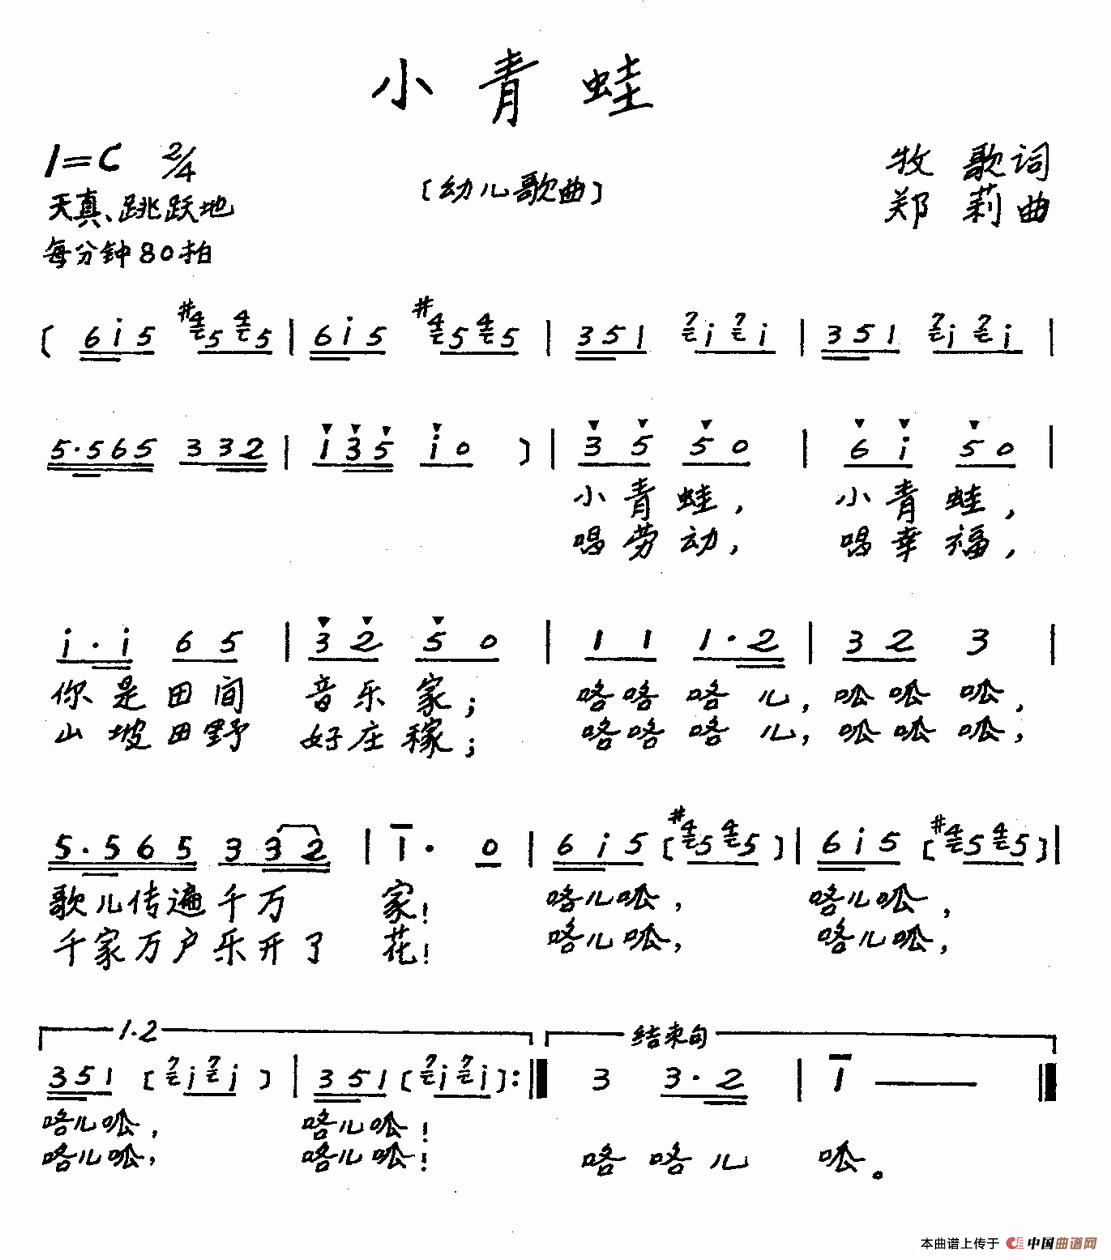 小青蛙
1=C 2/4
天真、跳跃地
每分钟80拍
〔幼儿歌曲〕
牧歌词
郑莉曲
〔 6 i 5 #4 5 4 5 | 6 i 5 #4 5 4 5 | 3 5 1 7 i 7 i | 3 5 1 7 i 7 i |
5·5 6 5 3 3 2 | 1 3 5 i 0 〕| 3 5 5 0 | 6 i 5 0 |
小青蛙， 小青蛙，
唱劳动， 唱幸福，
i·i 6 5 | 3 2 5 0 | 1 1 1·2 | 3 2 3 |
你是田间 音乐家； 咯咯咯儿，呱呱呱，
山坡田野 好庄稼； 咯咯咯儿，呱呱呱，
5·5 6 5 3 3 2 | 1· 0 | 6 i 5 〔#4 5 4 5〕| 6 i 5 〔#4 5 4 5〕|
歌儿传遍千万 家！ 咯儿呱， 咯儿呱，
千家万户乐开了 花！ 咯儿呱， 咯儿呱，
1.2 结束句
3 5 1 〔7 i 7 i〕 | 3 5 1 〔7 i 7 i〕:‖ 3 3·2 | 1 — ‖
咯儿呱， 咯儿呱！
咯儿呱， 咯儿呱！ 咯 咯儿 呱。
本曲谱上传于 中国曲谱网